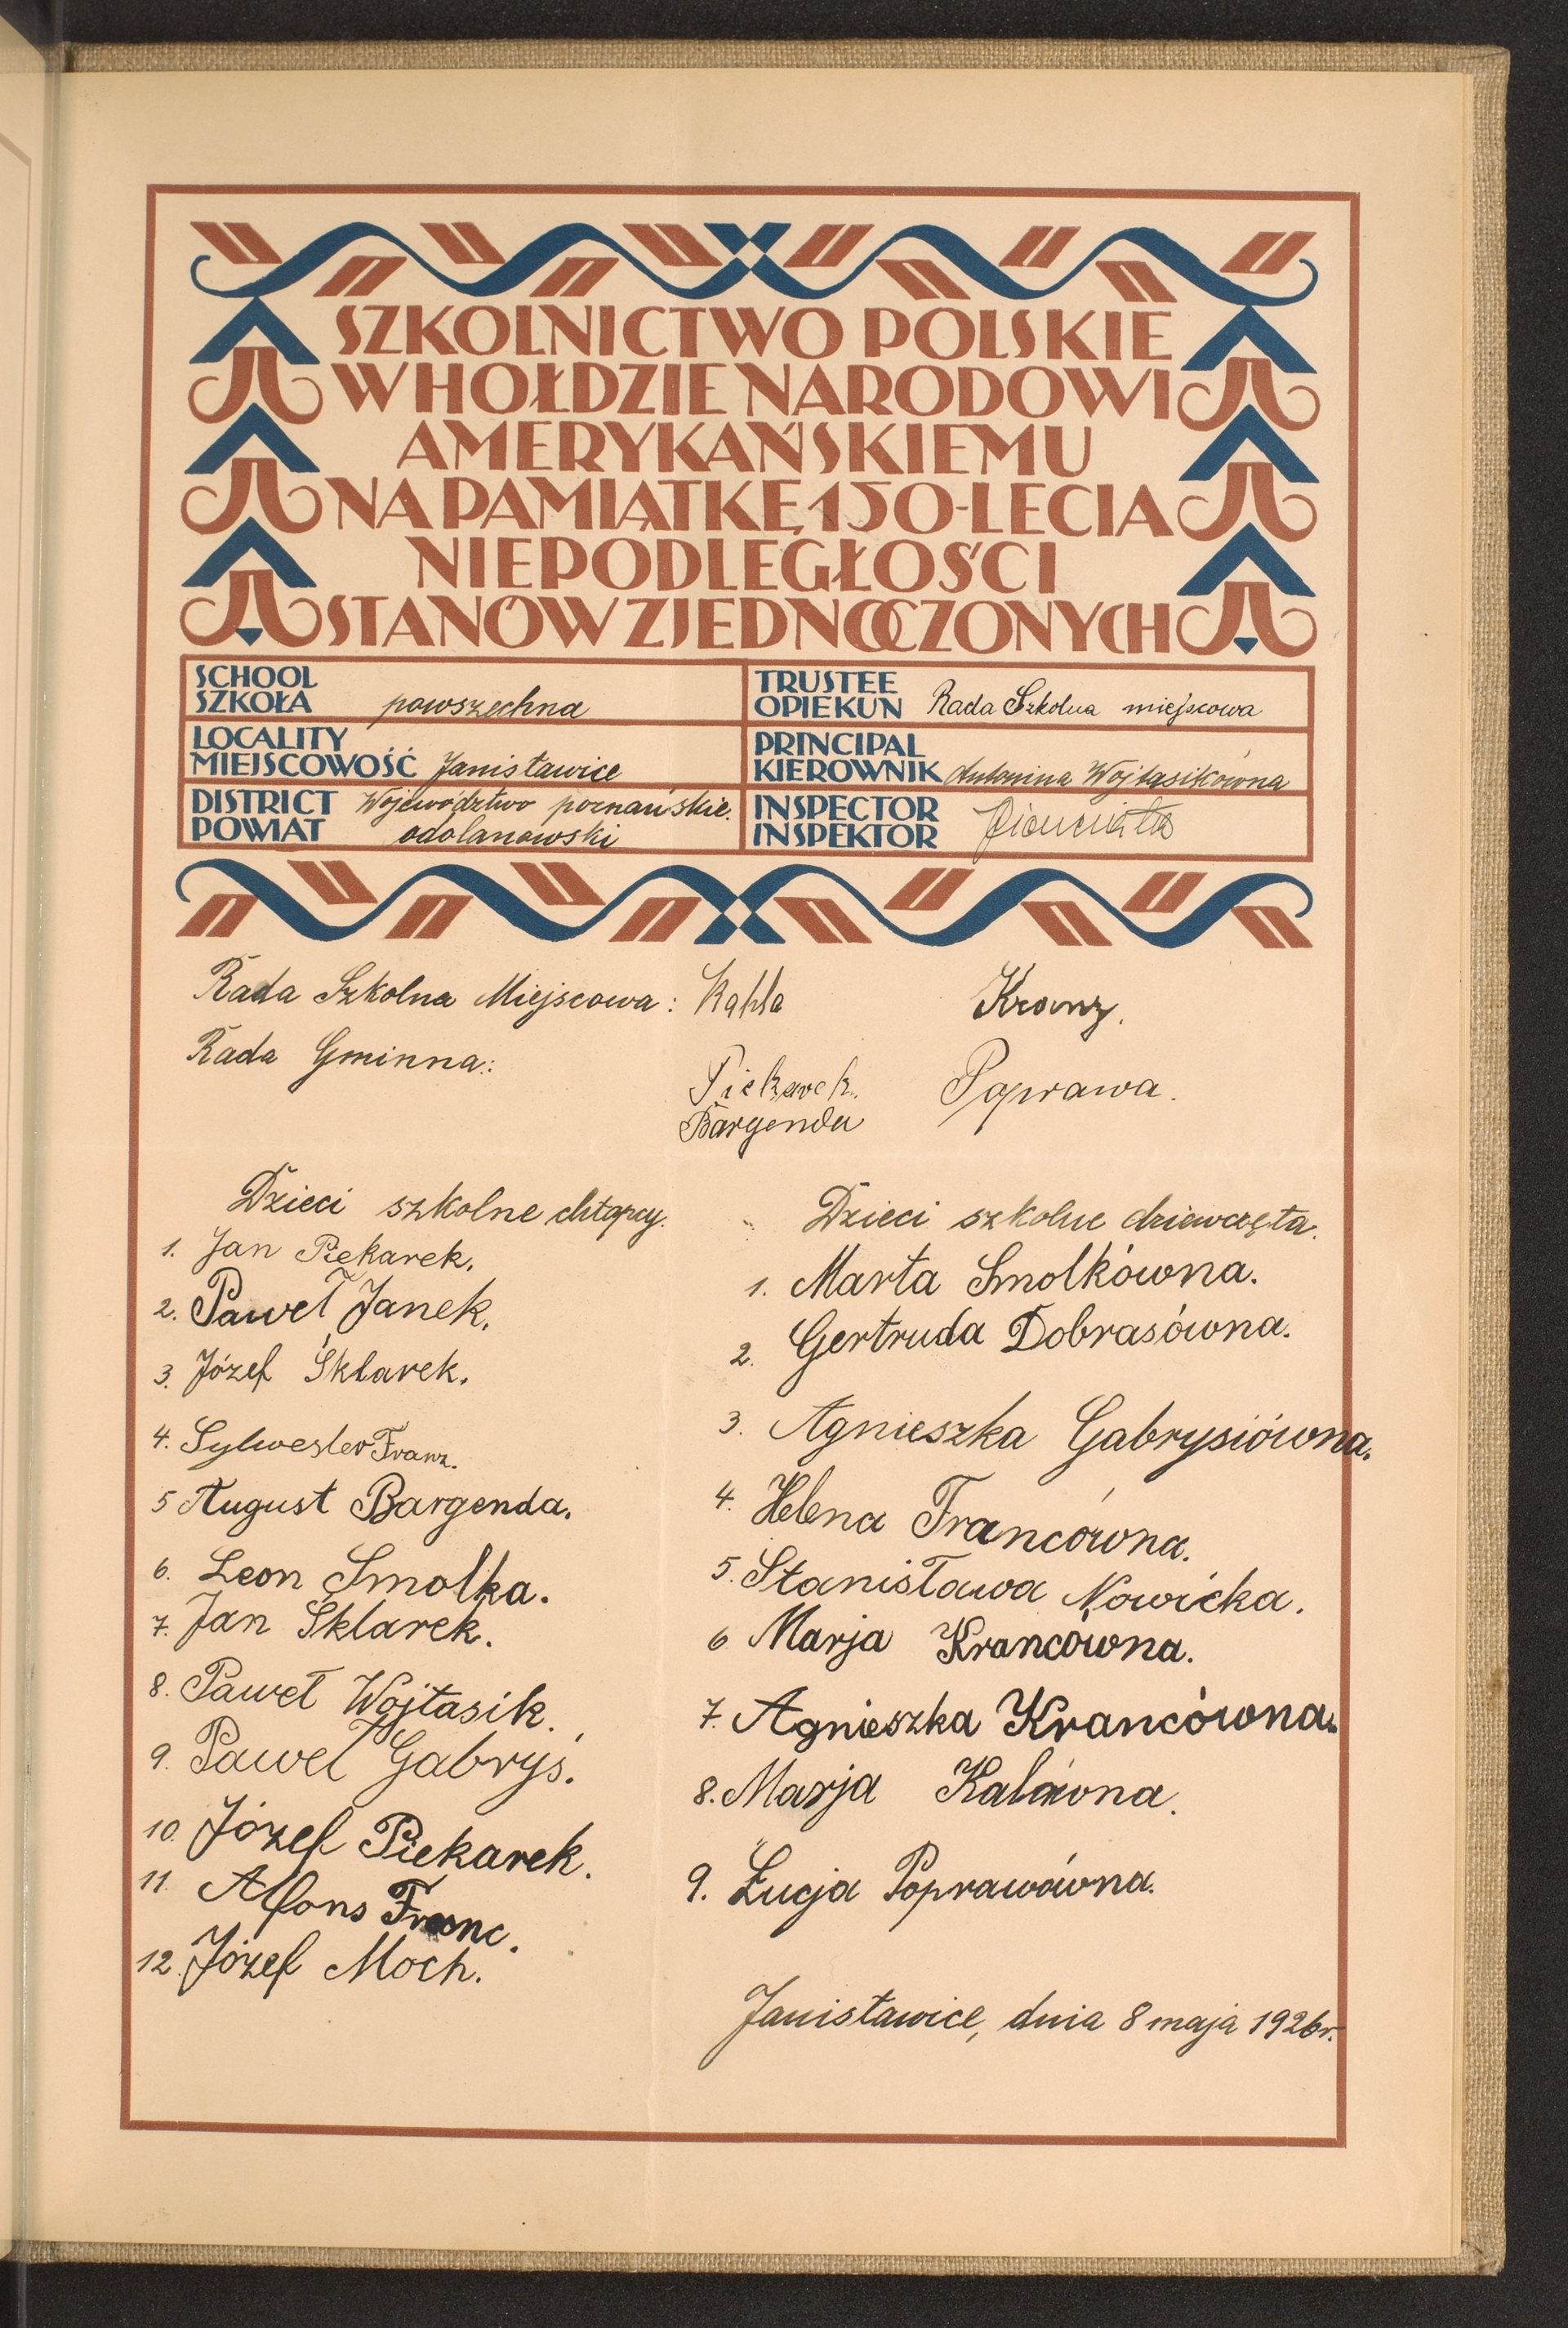 SZKOLNICTWO POLSKIE
W HOŁDZIE NARODOWI
AMERYKAŃSKIEMU
NA PAMIĄTKĘ 150-LECIA
NIEPODLEGŁOŚCI
STANÓW ZJEDNOCZONYCH
SCHOOL
SZKOŁA powszechna
TRUSTEE
OPIEKUN Rada Szkolna miejscowa
LOCALITY
MIEJSCOWOŚĆ Janisławice
PRINCIPAL
KIEROWNIK Antonina Wojtasikówna
DISTRICT Województwo poznańskie.
POWIAT odolanowski
INSPECTOR
INSPEKTOR
Rada Szkolna Miejscowa: Kahla Kranz.
Rada Gminna:
Piekarek. Poprawa.
Bargenda
Dzieci szkolne chłopcy.
1. Jan Piekarek.
2. Paweł Janek.
3. Józef Sklarek.
4. Sylwester Franz.
5 August Bargenda.
6. Leon Smolka.
7. Jan Sklarek.
8. Paweł Wojtasik.
9. Paweł Gabryś.
10. Józef Piekarek.
11. Alfons Franc.
12. Józef Moch.
Dzieci szkolne dziewczęta.
1. Marta Smolkówna.
2. Gertruda Dobrasówna.
3. Agnieszka Gabrysiówna.
4. Helena Francówna.
5. Stanisława Nowicka.
6 Marja Krancówna.
7. Agnieszka Krancówna.
8. Marja Kalówna.
9. Łucja Poprawówna.
Janisławice, dnia 8 maja 1926r.